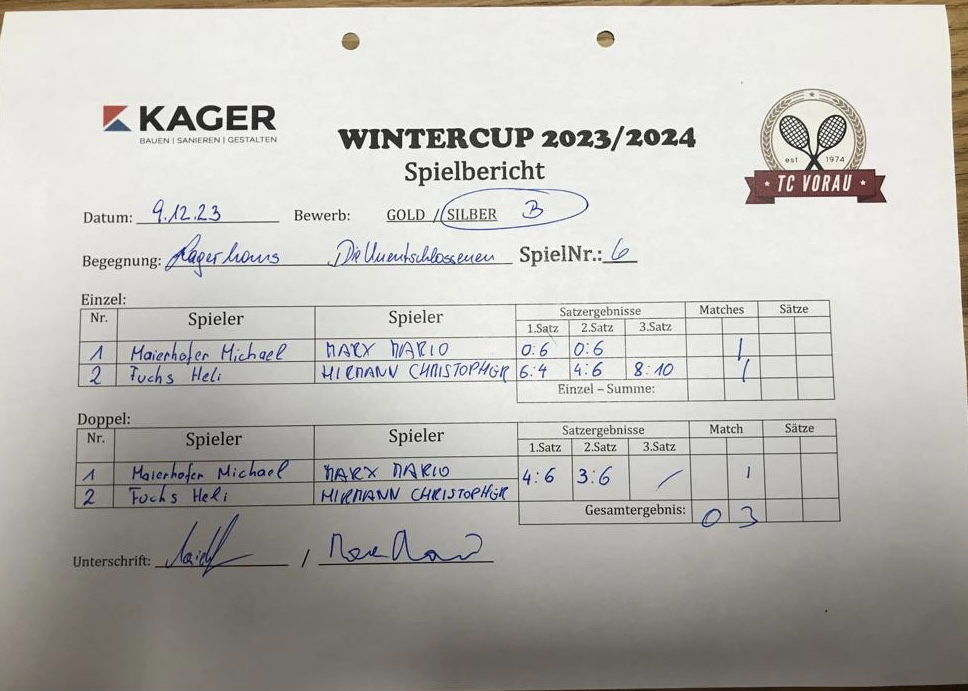 KAGER
BAUEN | SANIEREN | GESTALTEN
WINTERCUP 2023/2024
Spielbericht
est 1974
TC VORAU
Datum: 9.12.23 Bewerb: GOLD / SILBER B
Begegnung: Lagerhaus Die Unentschlossenen SpielNr.: 6
Einzel:
Nr. Spieler Spieler Satzergebnisse Matches Sätze
1.Satz 2.Satz 3.Satz
1 Maierhofer Michael MARX MARIO 0:6 0:6 1
2 Fuchs Heli HIRMANN CHRISTOPHER 6:4 4:6 8:10 1
Einzel – Summe:
Doppel:
Nr. Spieler Spieler Satzergebnisse Match Sätze
1.Satz 2.Satz 3.Satz
1 Maierhofer Michael MARX MARIO 4:6 3:6 / 1
2 Fuchs Heli HIRMANN CHRISTOPHER
Gesamtergebnis: 0 3
Unterschrift: /